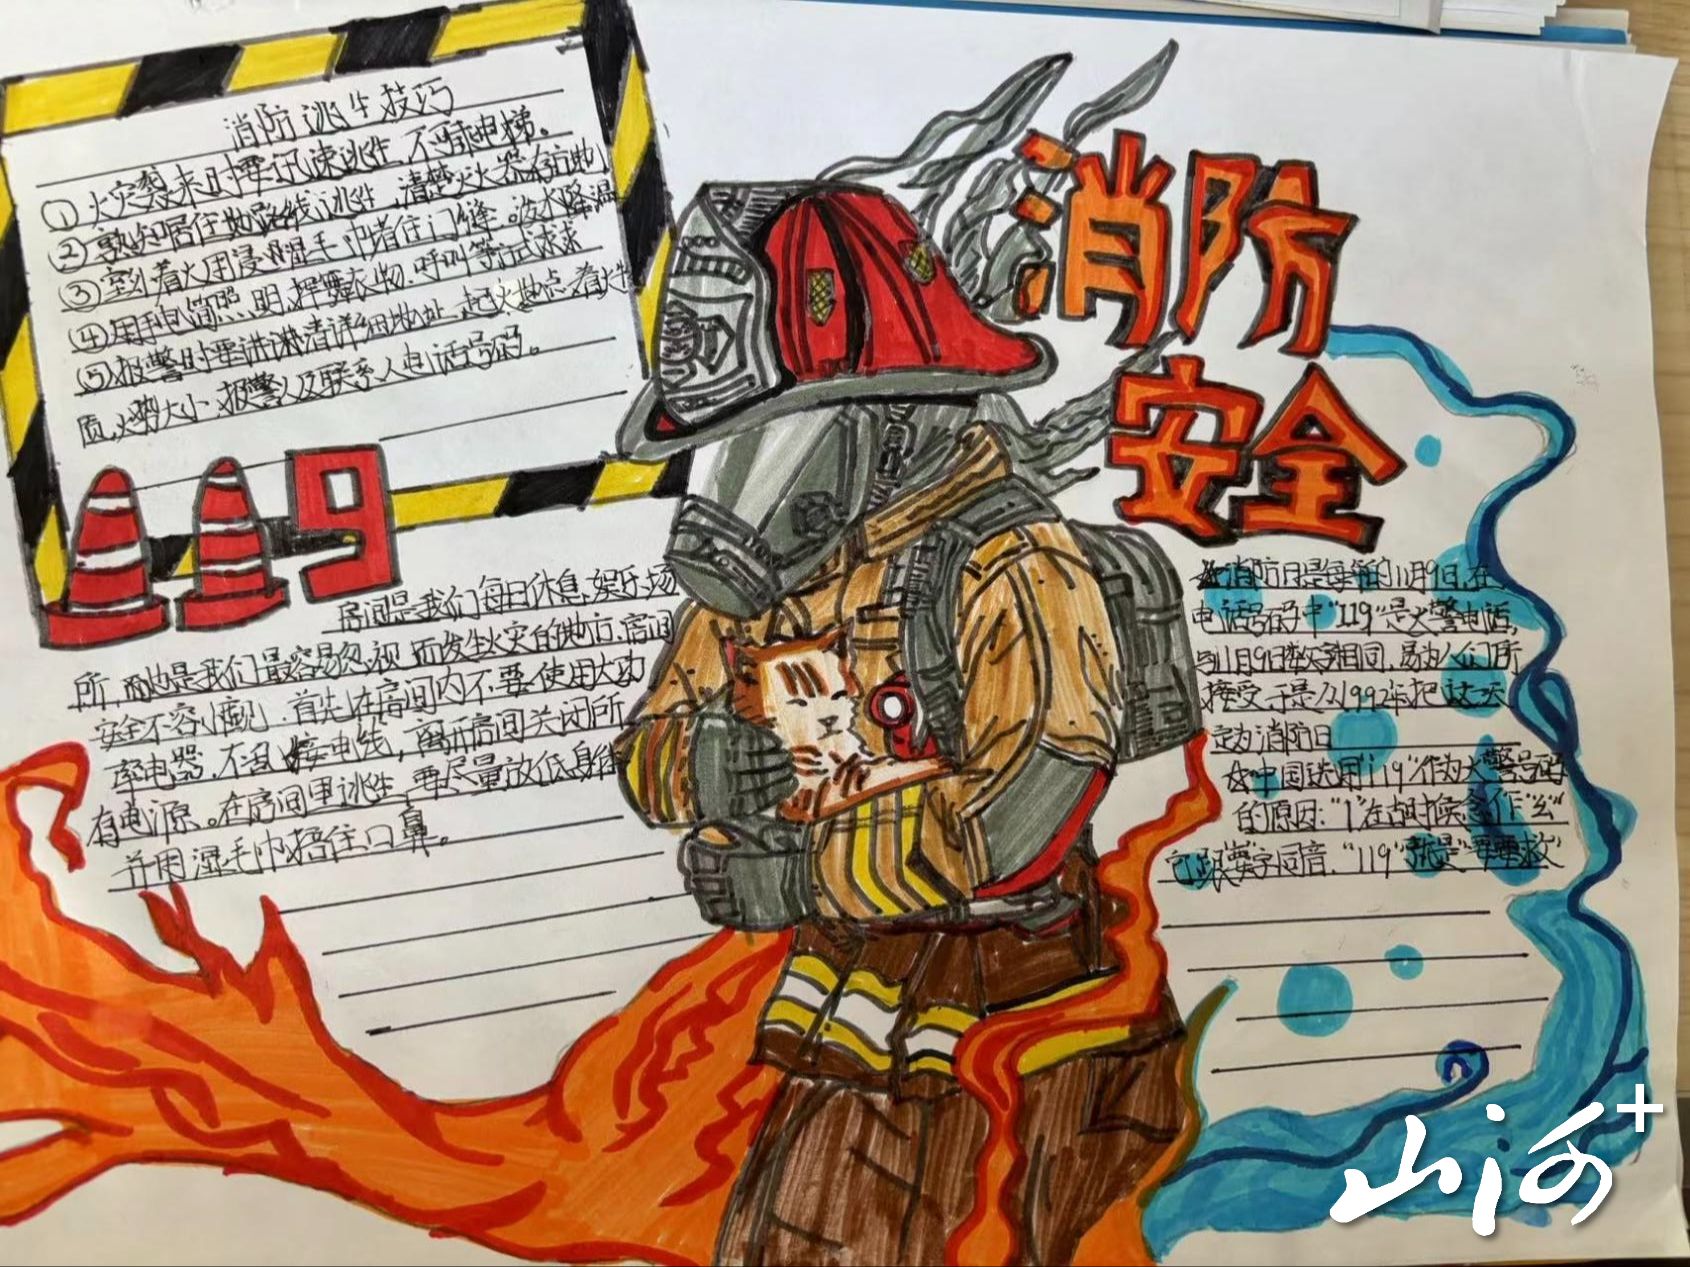 消防逃生技巧
①火灾袭来时要迅速逃生,不可乘电梯。
②熟知居住地路线逃生,清楚灭火器存
③ 着火用浸湿毛巾堵住门缝。泼水降温
④用手电筒照明,挥舞衣物.呼叫等 式求
⑤报警时要讲清详细地址、起火地点、着火物
质,火势大小、报警人及联系人电话号码。
119
消防
安全
房间是我们每日休息,娱乐场
所,而也是我们最容易忽视而发生火灾的地方.房间
安全不容小觑,首先在房间内不要使用大功
率电器.不乱接电线,离开房间关闭所
有电源。在房间里逃生,要尽量放低身体
并用湿毛巾捂住口鼻。
消防日是每年的11月9日,在
电话号码中"119"是火警电话,
与11月9日数字相同,易为人们所
接受.于是从1992年把这一天
定为消防日
中国选用"119"作为火警号码
的原因:"1"在古时候念作"幺"
它跟"要"字同音."119"就是"要要救"
山河+